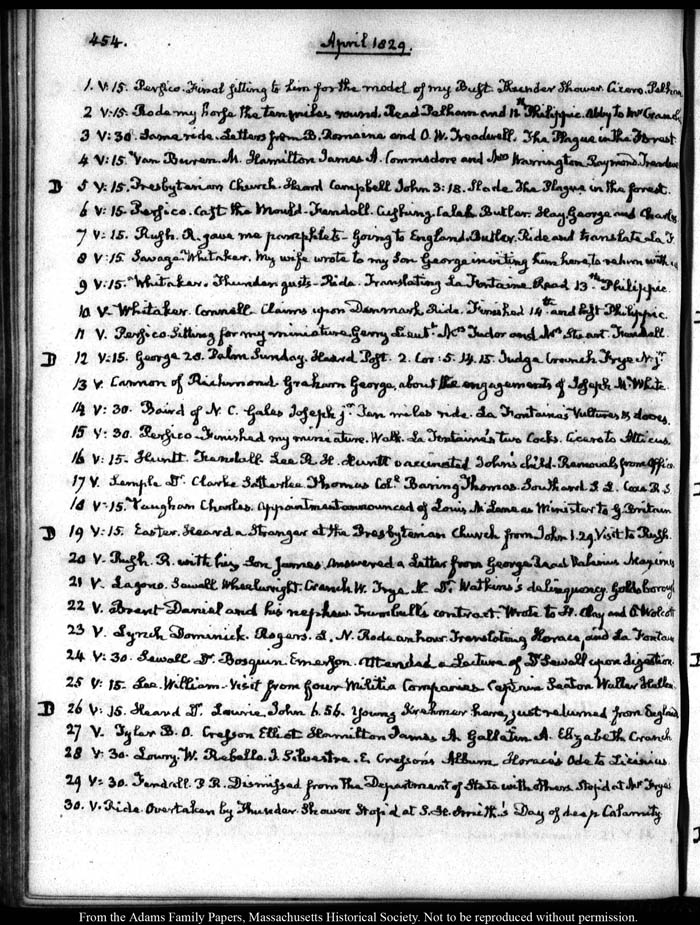 454.
April 1829.
1. V:15. Persico. Final sitting to him for the model of my Bust. Thunder Shower. Cicero. Pelham
2 V:15. Rode my horse the ten miles round. Read Pelham and 12th Philippic. Abby to Mrs Cranch
3 V:30. Same ride. Letters from B. Romaine and O. W. Treadwell. The Plague in the Forest
4 V:15. Van Buren. M. Hamilton James A. Commodore and Mrs Warrington Raymond.
D 5 V:15. Presbyterian Church. Heard Campbell John 3:18. Slade. The Plague in the forest.
6 V:15. Persico. Cast the Mould. Kendall. Cushing Caleb. Butler. Hay George and Charles
7 V:15. Rush. R. gave me pamphlets. Going to England. Butler. Ride and translate La F.
8 V:15 Savage. Whitaker. My wife wrote to my Son George inviting him here, to return with us
9 V:15. Whitaker. Thunder gusts. Ride. Translating La Fontaine Read 13th Philippic.
10 V. Whitaker. Connell Claims upon Denmark Ride. Finished 14th and last Philippic.
11 V. Persico. Sitting for my miniature Gerry Lieut. Mrs Tudor and Mrs Stuart. Kendall
D 12 V:15. George 28. Palm Sunday. Heard Post. 2. Cor: 5. 14. 15. Judge Cranch Frye N. jr.
13 V. Cannon of Richmond Graham George, about the engagements of Joseph M. White
14 V:30. Baird of N. C. Gales Joseph jr. Ten miles ride. La Fontaine's Vultures & doves.
15 V:30. Persico. Finished my miniature. Walk. La Fontaine's two Cocks. Cicero to Atticus.
16 V:15. Huntt. Kendall. Lee R. H. Huntt vaccinated John's child. Removals from Office
17 V. Semple Dr. Clarke Satterlee Thomas Col. Baring Thomas. Southard S. L. Coxe R. S
18 V:15. Vaughan Charles. Appointment announced of Louis McLane as Minister to G. Britain
D 19 V:15. Easter. Heard a Stranger at the Presbyterian Church from John 1. 29. Visit to Rush.
20 V. Rush. R. with his Son James. Answered a Letter from George Read Valerius Maximus
21 V. Lagono. Sewall Wheelwright. Cranch W. Frye N. Dr. Watkins's delinquency. Goldsborough
22 V. Brent Daniel and his nephew Trumbull's contract. Wrote to H. Clay and O. Wolcott
23 V. Lynch Dominick. Rogers. L. N. Rode an hour. Translating Horace, and La Fontaine
24 V:30. Sewall Dr. Bosquin. Emerson. Attended a Lecture of Dr Sewall upon digestion
25 V:15. Lee. William. Visit from four Militia Companies Captain Seaton Waller
D 26 V:15. Heard Dr. Laurie. John 6. 56. Young Krehmer here, just returned from England
27 V. Tyler B. O. Cresson Elliot Hamilton James A. Gallatin A. Elizabeth Cranch
28 V:30. Lowry. W. Rebello. J. Silvestre. E. Cresson's Album Horace's Ode to Licinius.
29 V:30. Fendall. P R. Dismissed from the Department of State with others. Stop'd at Mr Frye's
30. V. Ride. Overtaken by Thunder Shower Stop'd at S. H. Smith's Day of deep Calamity
From the Adams Family Papers, Massachusetts Historical Society. Not to be reproduced without permission.